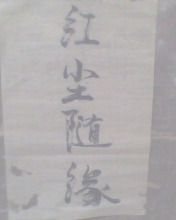 红尘随缘